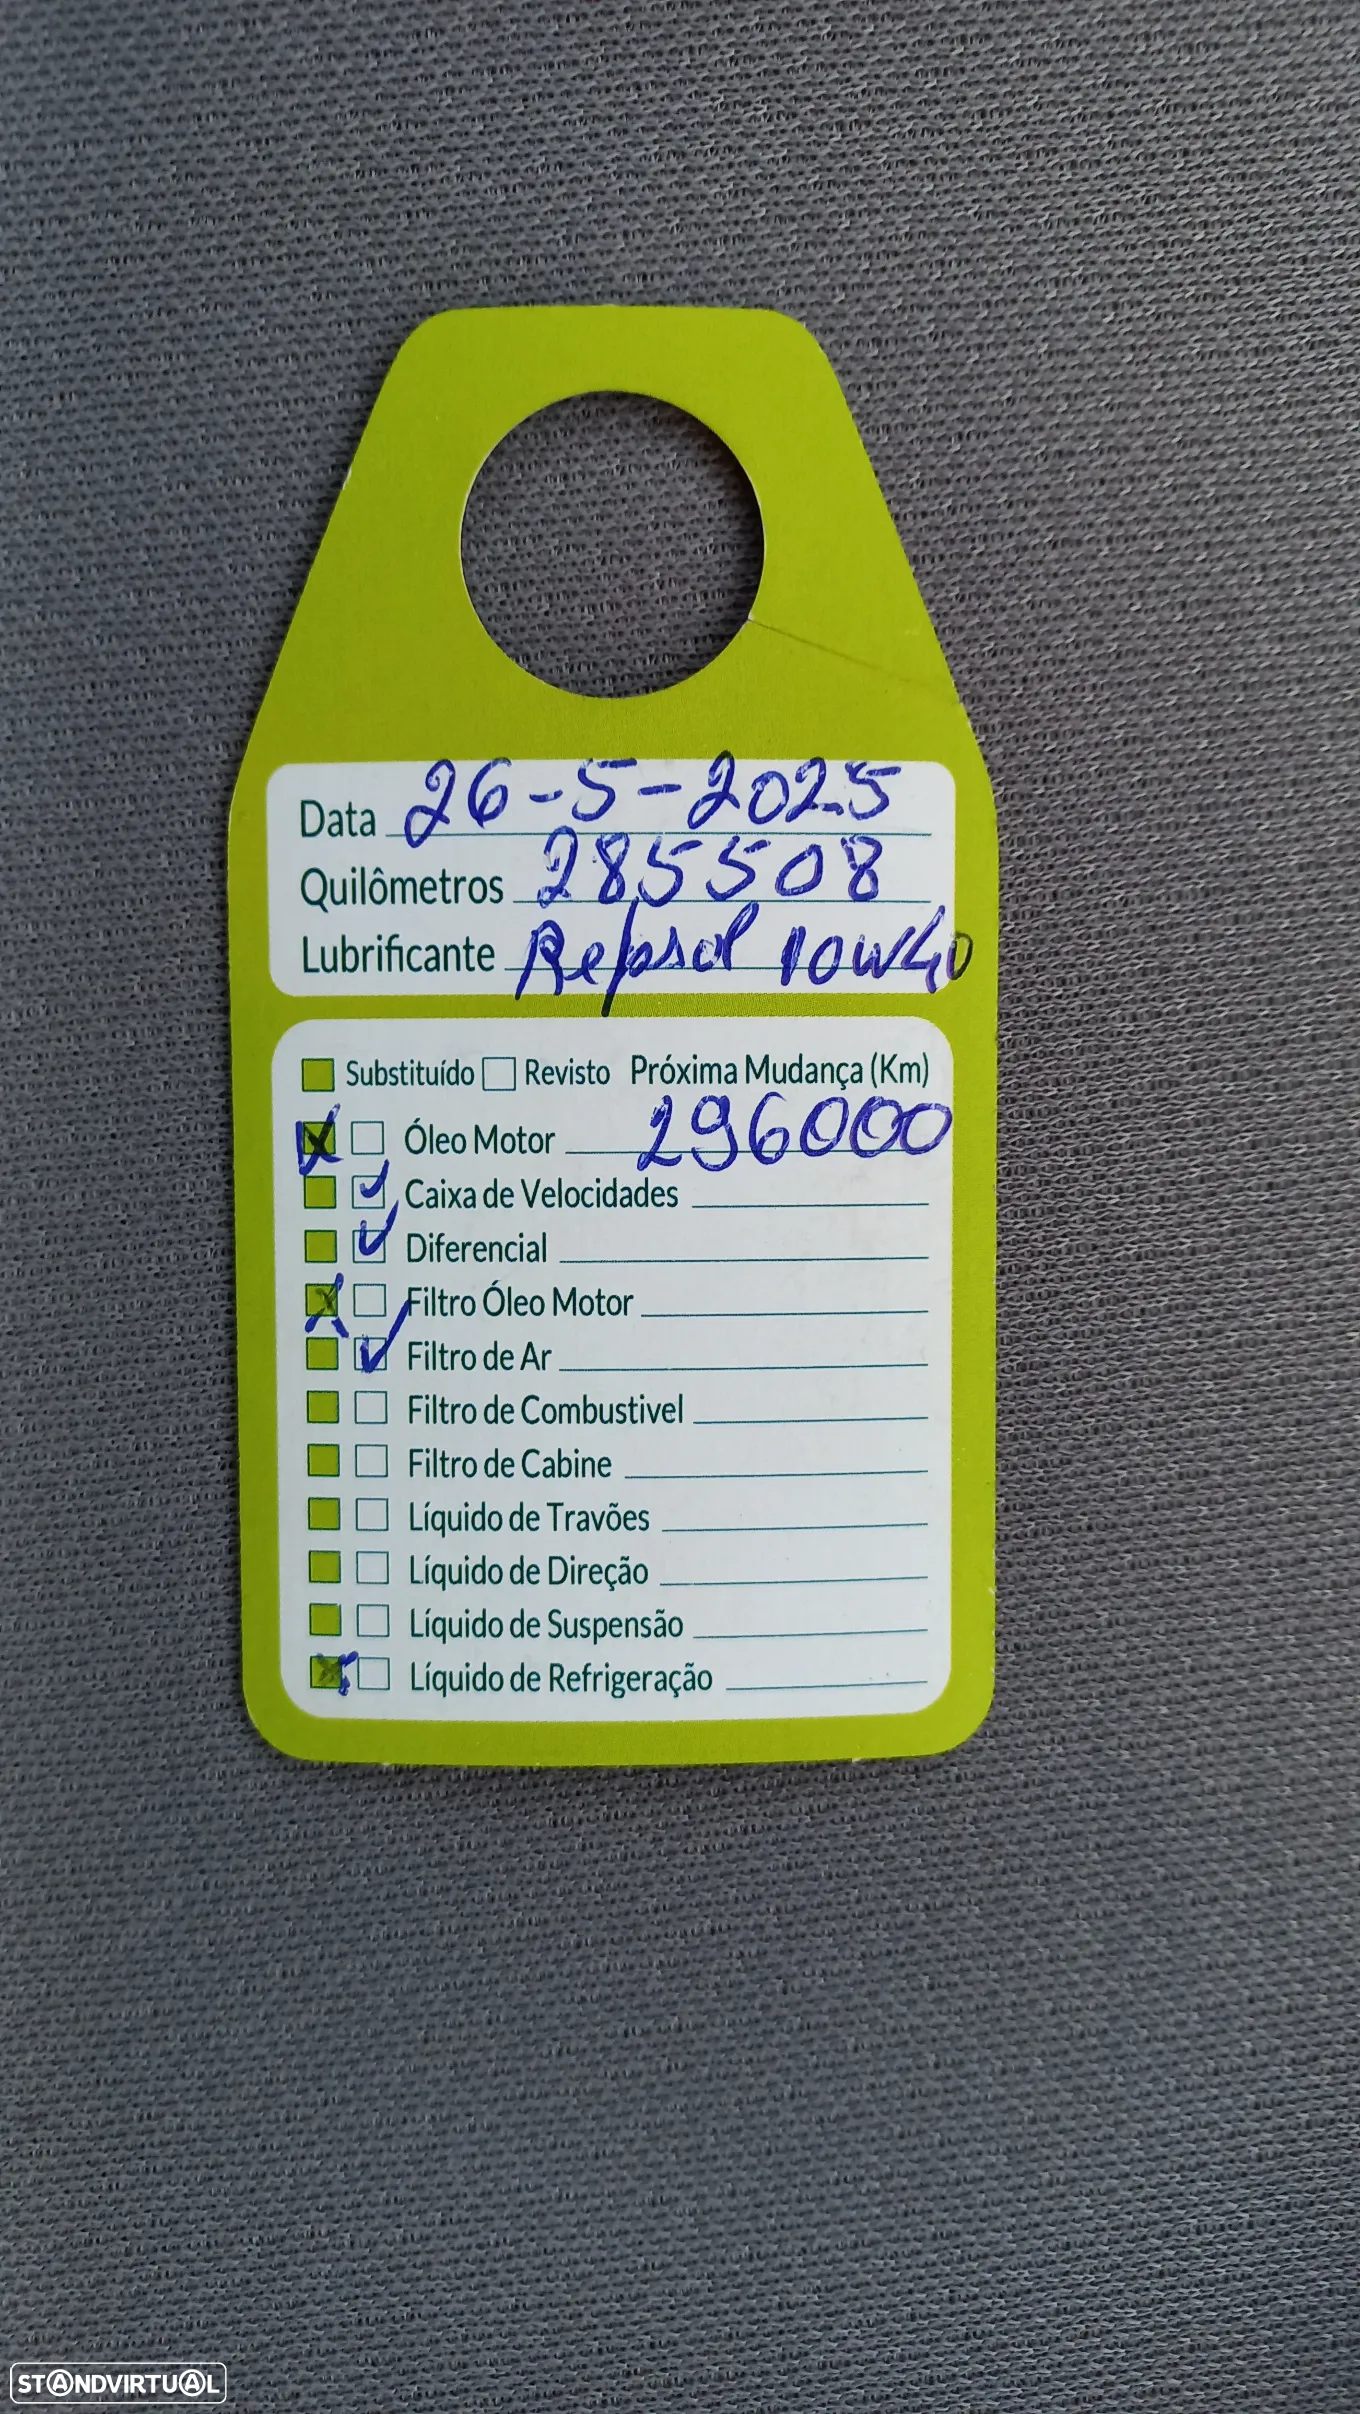 Data 26-5-2025
Quilômetros 285508
Lubrificante Repsol 10W40
Substituído Revisto Próxima Mudança (Km)
Óleo Motor 296000
Caixa de Velocidades
Diferencial
Filtro Óleo Motor
Filtro de Ar
Filtro de Combustivel
Filtro de Cabine
Líquido de Travões
Líquido de Direção
Líquido de Suspensão
Líquido de Refrigeração
STANDVIRTUAL